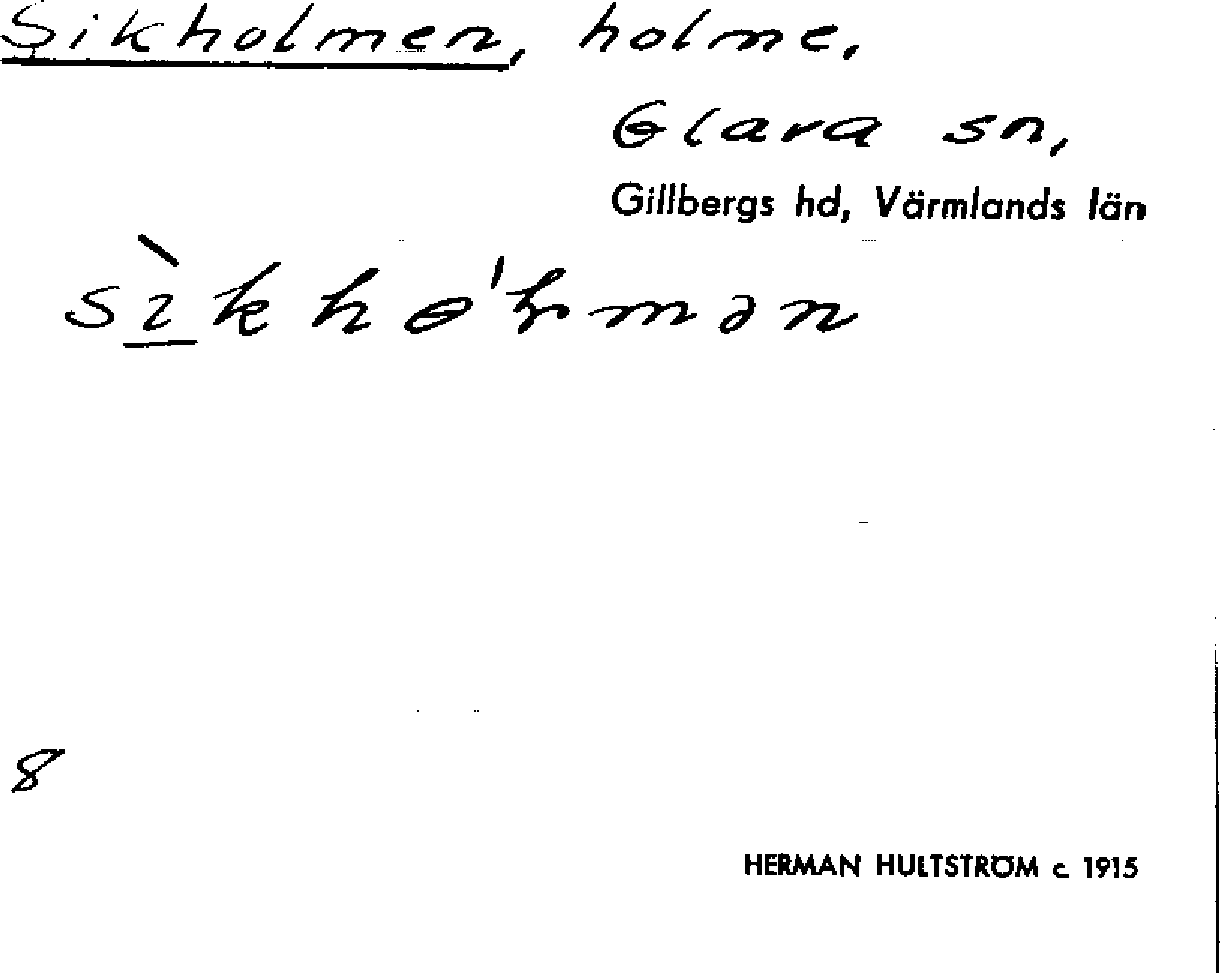 Sikholmen, holme,
Glava sn,
Gillbergs hd, Värmlands län
8
HERMAN HULTSTRÖM c 1915